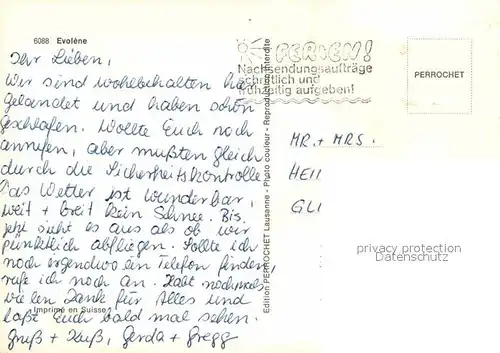 6088 Evolène
Ihr Lieben,
Wir sind wohlbehalten hier
gelandet und haben schön
geschlafen. Wollte Euch noch
anrufen, aber mußten gleich
durch die Sicherheitskontrolle
Das Wetter ist wunderbar,
weit + breit kein Schnee. Bis
jetzt sieht es aus als ob wir
pünktlich abfliegen. Sollte ich
noch irgendwo ein Telefon finden,
rufe ich noch an. Habt nochmals
vielen Dank für Alles und
laßt Euch bald mal sehen.
Gruß + Kuß, Gerda + Gregg
Imprimé en Suisse
Edition PERROCHET Lausanne - Photo couleur - Reproduction interdite
FERIEN!
Nachsendungsaufträge
schriftlich und
frühzeitig aufgeben!
PERROCHET
MR. + MRS.
HEII
GLI
privacy protection
Datenschutz